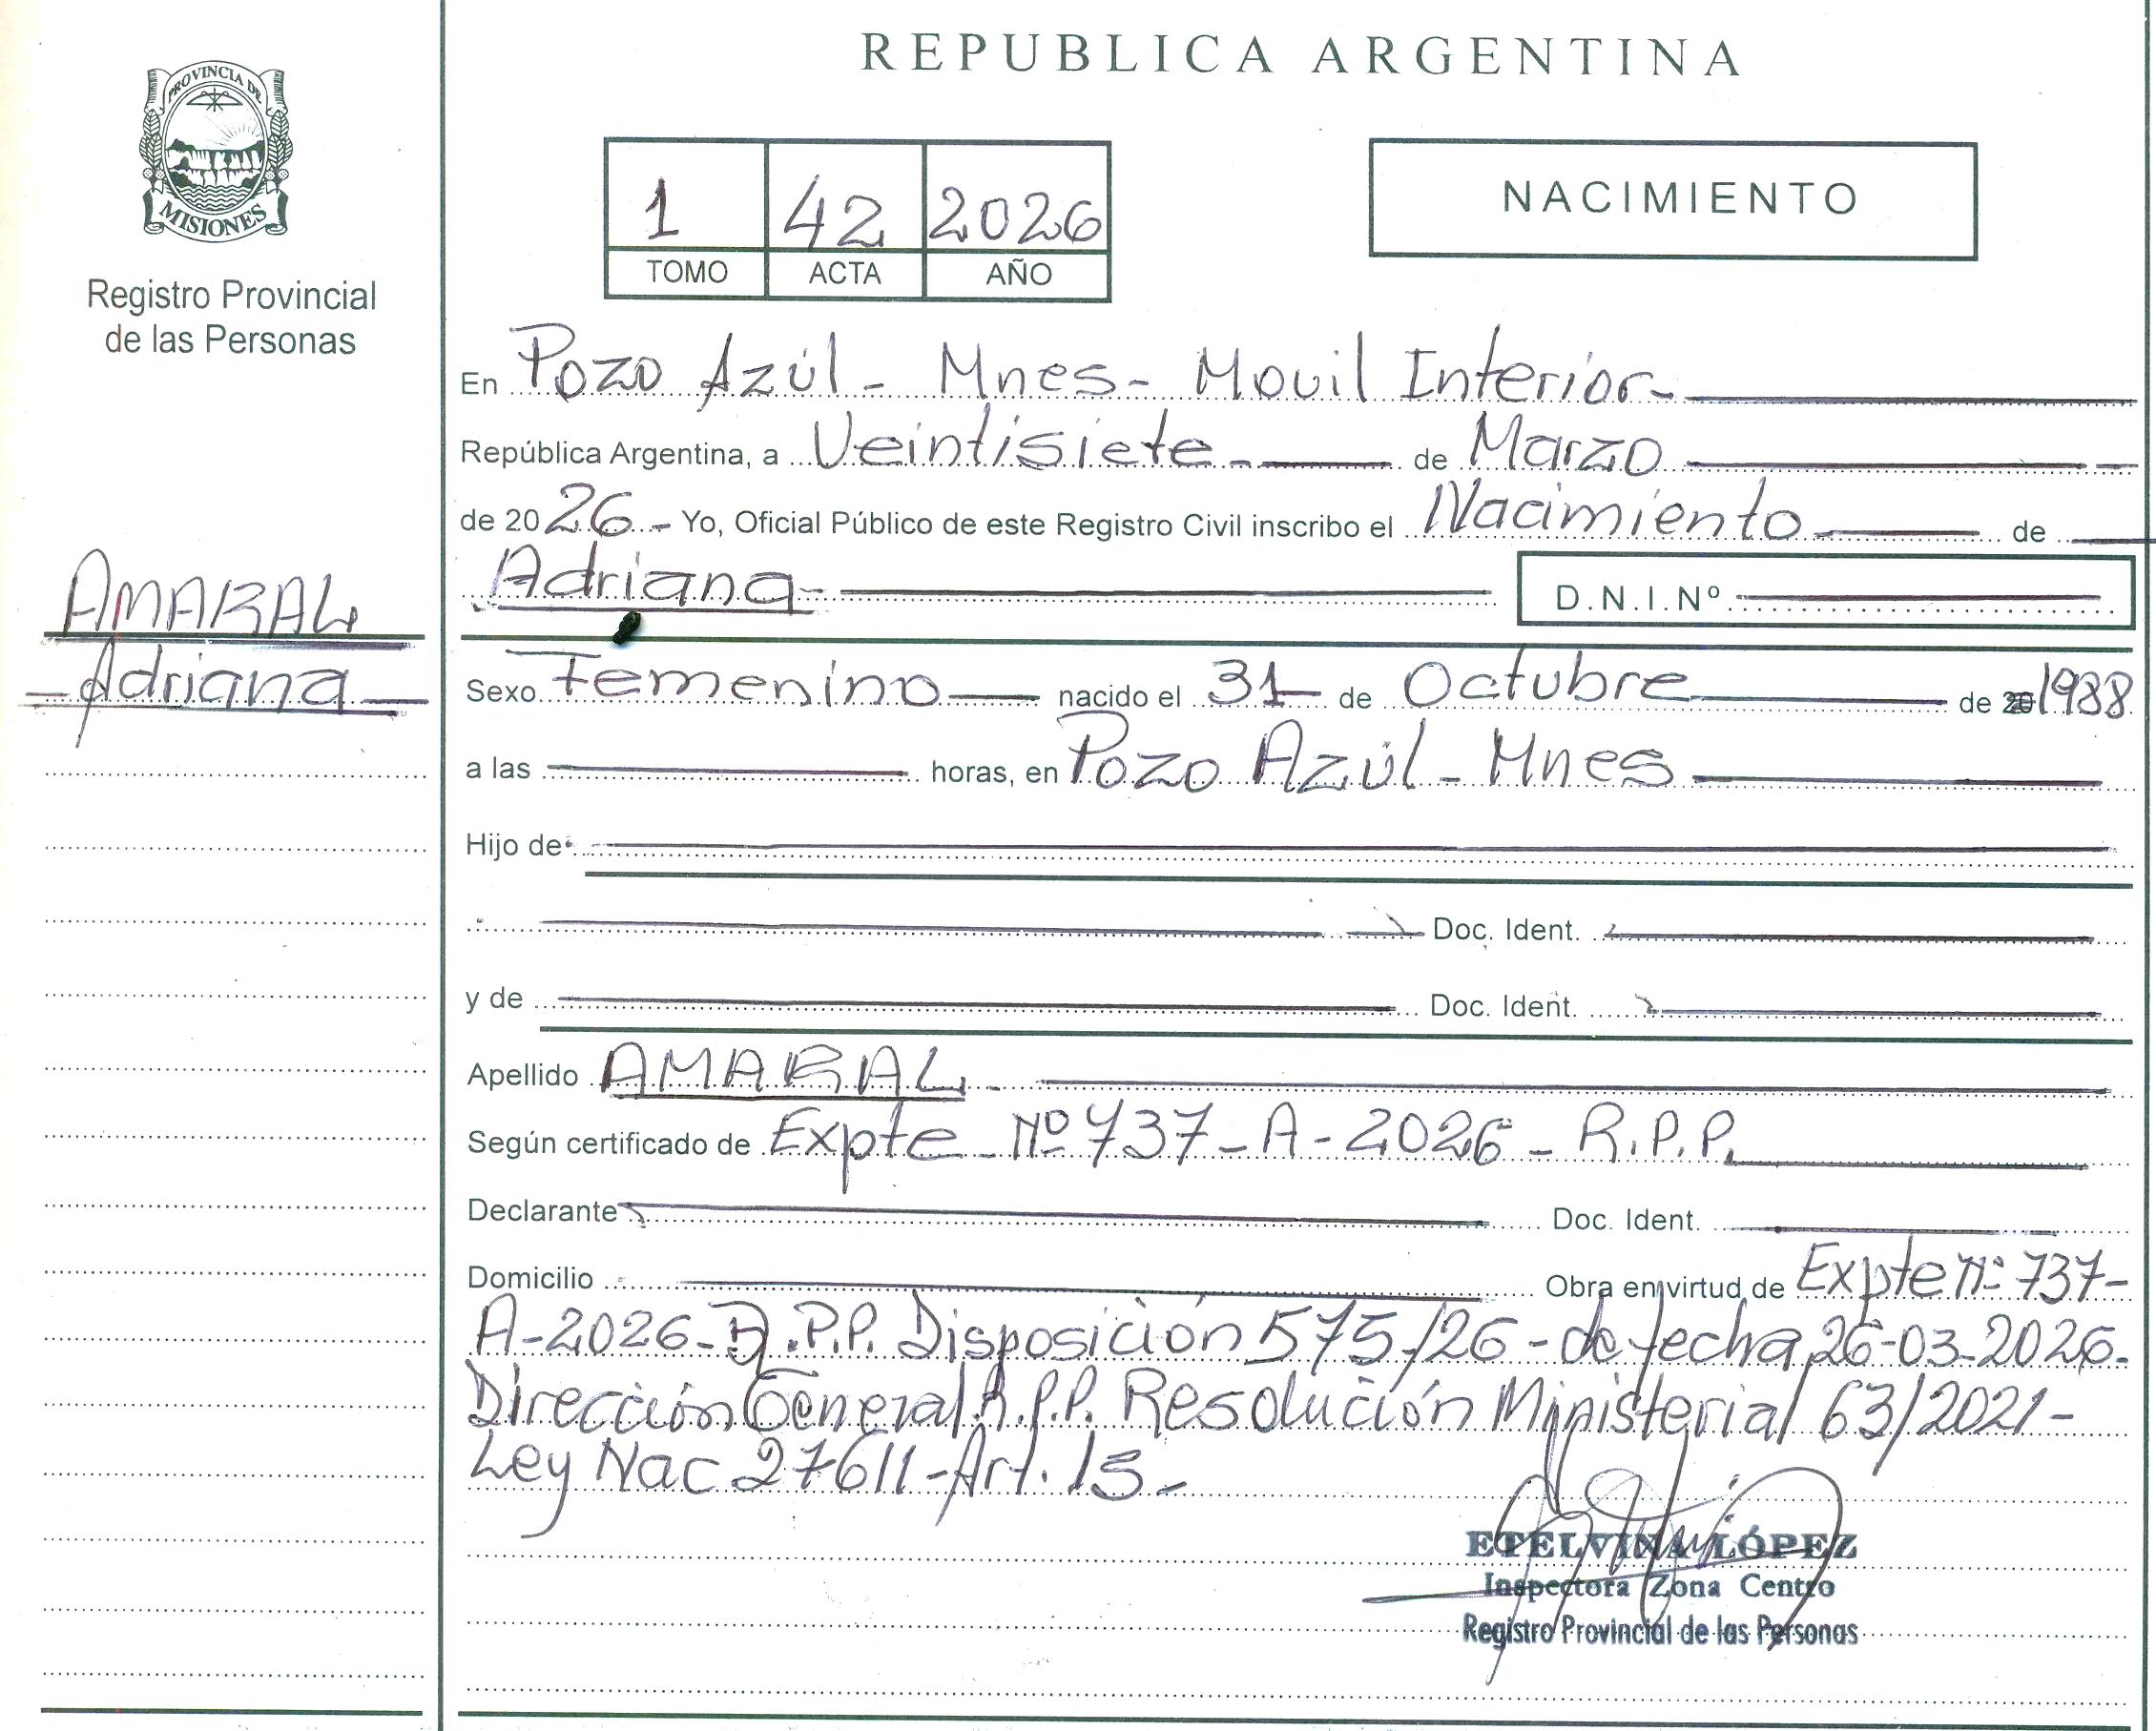 REPUBLICA ARGENTINA
PROVINCIA DE
MISIONES
Registro Provincial
de las Personas
1 42 2026
TOMO ACTA AÑO
NACIMIENTO
En Pozo Azúl - Mnes - Movil Interior -
República Argentina, a Veintisiete - de Marzo
de 20 26 - Yo, Oficial Público de este Registro Civil inscribo el Nacimiento de
Adriana - D.N.I.Nº
AMARAL
Adriana
Sexo Femenino nacido el 31 de Octubre de 20 1988
a las horas, en Pozo Azúl - Mnes
Hijo de
Doc. Ident.
y de Doc. Ident.
Apellido AMARAL -
Según certificado de Expte Nº 737 - A - 2026 - R.P.P.
Declarante Doc. Ident.
Domicilio Obra en virtud de Expte Nº 737 -
A - 2026 - R.P.P. Disposición 575/26 - de fecha 26-03-2026 -
Dirección General R.P.P. Resolución Ministerial 63/2021 -
Ley Nac 27611 - Art. 15 -
ETELVINA LÓPEZ
Inspectora Zona Centro
Registro Provincial de las Personas